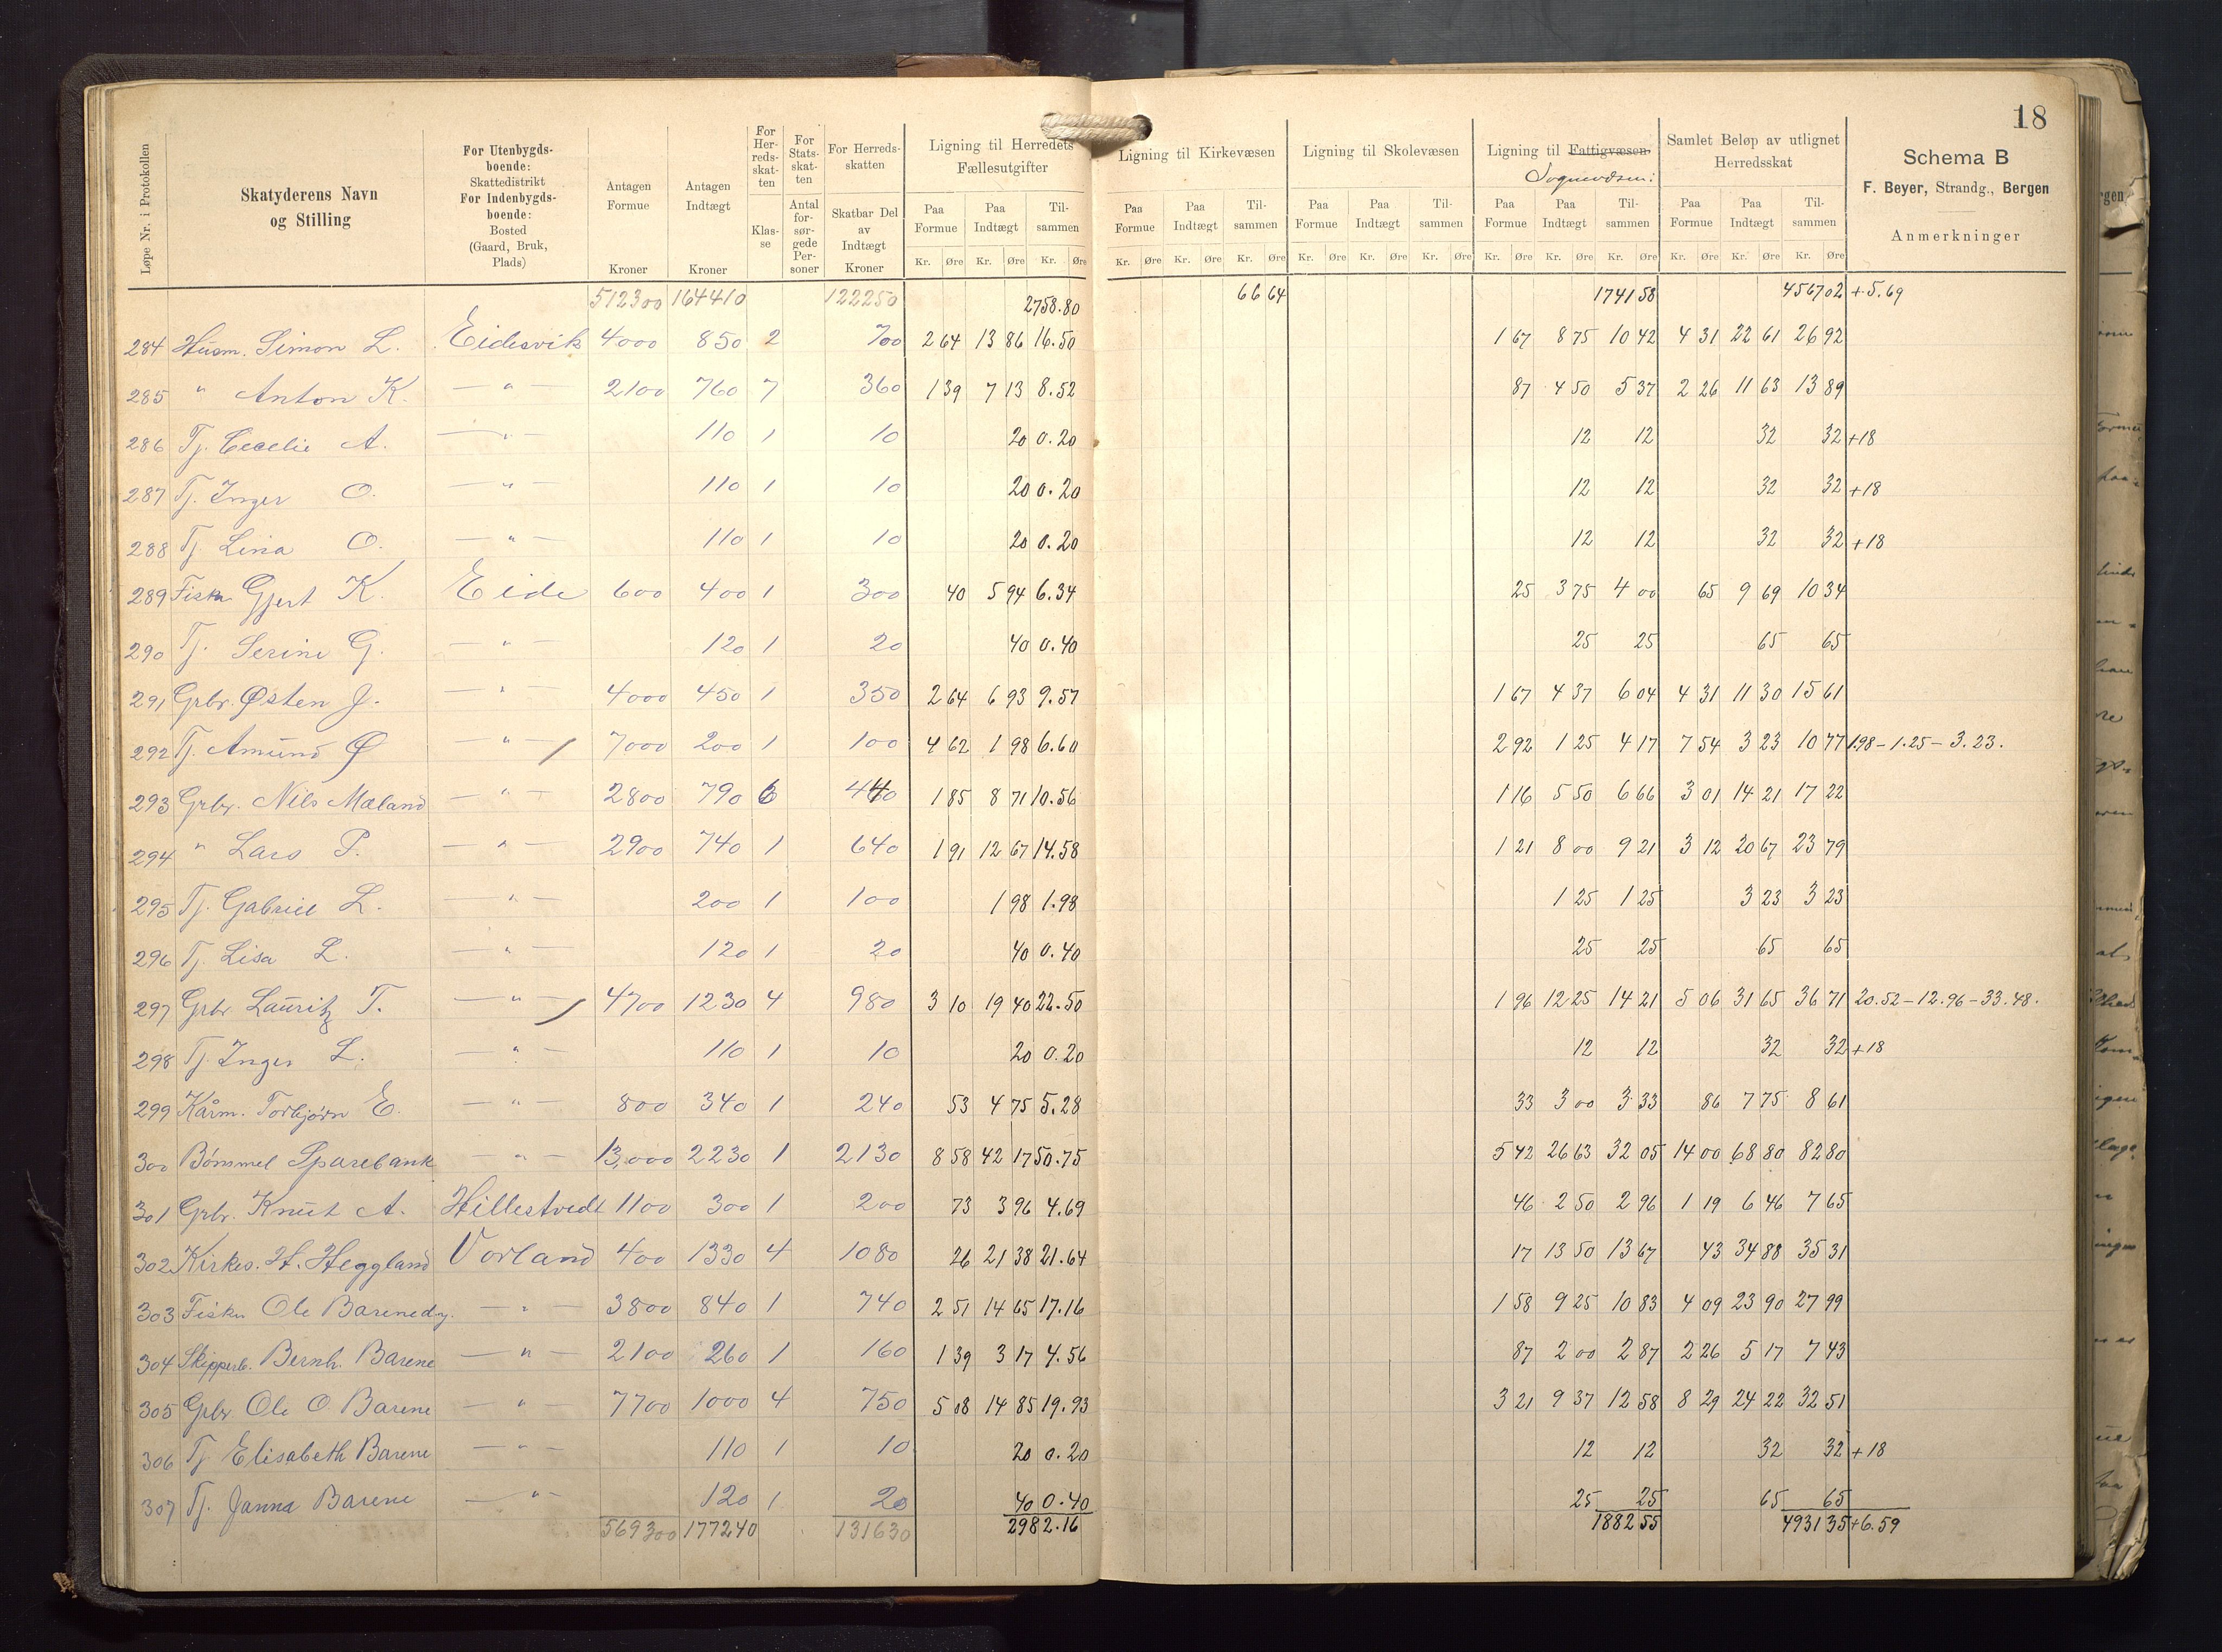 18
Løpe Nr. i Protokollen
Skatyderens Navn og Stilling
For Utenbygds-boende: Skattedistrikt For Indenbygds-boende: Bosted (Gaard, Bruk, Plads)
Antagen Formue Kroner
Antagen Indtægt Kroner
For Herreds-skat-ten Klas-se
For Stats-skat-ten Antal for-sør-gede Per-soner
For Herreds-skatten Skatbar Del av Indtægt Kroner
Ligning til Herredets Fællesutgifter
Ligning til Kirkevæsen
Ligning til Skolevæsen
Ligning til Fattigvæsen Sognevæsen:
Samlet Beløp av utlignet Herredsskat
Paa Formue Paa Indtægt Til-sammen Paa Formue Paa Indtægt Til-sammen Paa Formue Paa Indtægt Til-sammen Paa Formue Paa Indtægt Til-sammen Paa Formue Paa Indtægt Til-sammen
Kr. Øre Kr. Øre Kr. Øre Kr. Øre Kr. Øre Kr. Øre Kr. Øre Kr. Øre Kr. Øre Kr. Øre Kr. Øre Kr. Øre Kr. Øre Kr. Øre Kr. Øre
Schema B
F. Beyer, Strandg., Bergen
Anmerkninger
512300 164410 122250 2758.80 66 64 1741 58 4567 02 +5.69
284 Husm. Simon L. Eidesvik 4000 850 2 700 2 64 13 86 16.50 1 67 8 75 10 42 4 31 22 61 26 92
285 " Anton K. — " — 2100 760 7 360 1 39 7 13 8.52 87 4 50 5 37 2 26 11 63 13 89
286 Tj. Cecelie A. — " — 110 1 10 20 0.20 12 12 32 32 +18
287 Tj. Inger O. — " — 110 1 10 20 0.20 12 12 32 32 +18
288 Tj. Lina O. — " — 110 1 10 20 0.20 12 12 32 32 +18
289 Fisk. Gjert K. Eide 600 400 1 300 40 5 94 6.34 25 3 75 4 00 65 9 69 10 34
290 Tj. Serine G. — " — 120 1 20 40 0.40 25 25 65 65
291 Grbr. Østen J. — " — 4000 450 1 350 2 64 6 93 9.57 1 67 4 37 6 04 4 31 11 30 15 61
292 Tj. Amund Ø — " — / 7000 200 1 100 4 62 1 98 6.60 2 92 1 25 4 17 7 54 3 23 10 77 1.98 - 1.25 - 3.23.
293 Grbr. Nils Mæland — " — 2800 790 6 440 1 85 8 71 10.56 1 16 5 50 6 66 3 01 14 21 17 22
294 " Lars P. — " — 2900 740 1 640 1 91 12 67 14.58 1 21 8 00 9 21 3 12 20 67 23 79
295 Tj. Gabriel L. — " — 200 1 100 1 98 1.98 1 25 1 25 3 23 3 23
296 Tj. Lisa L. — " — 120 1 20 40 0.40 25 25 65 65
297 Grbr Lauritz T. — " — / 4700 1230 4 980 3 10 19 40 22.50 1 96 12 25 14 21 5 06 31 65 36 71 20.52 - 12.96 - 33.48.
298 Tj. Inger L. — " — 110 1 10 20 0.20 12 12 32 32 +18
299 Kårm. Torbjørn E. — " — 800 340 1 240 53 4 75 5.28 33 3 00 3 33 86 7 75 8 61
300 Bømmel Sparebank — " — 13,000 2230 1 2130 8 58 42 17 50.75 5 42 26 63 32 05 14 00 68 80 82 80
301 Grbr. Knut A. Hillestvedt 1100 300 1 200 73 3 96 4.69 46 2 50 2 96 1 19 6 46 7 65
302 Kirkes. H. Heggland Vorland 400 1330 4 1080 26 21 38 21.64 17 13 50 13 67 43 34 88 35 31
303 Fisker Ole Barene dy. — " — 3800 840 1 740 2 51 14 65 17.16 1 58 9 25 10 83 4 09 23 90 27 99
304 Skipperb. Bernh. Barene — " — 2100 260 1 160 1 39 3 17 4.56 87 2 00 2 87 2 26 5 17 7 43
305 Grbr. Ole O. Barene — " — 7700 1000 4 750 5 08 14 85 19.93 3 21 9 37 12 58 8 29 24 22 32 51
306 Tj Elisabeth Barene — " — 110 1 10 20 0.20 12 12 32 32 +18
307 Tj. Janna Barene — " — 120 1 20 40 0.40 25 25 65 65
569300 177240 131630 2982.16 1882 55 4931 35 +6.59